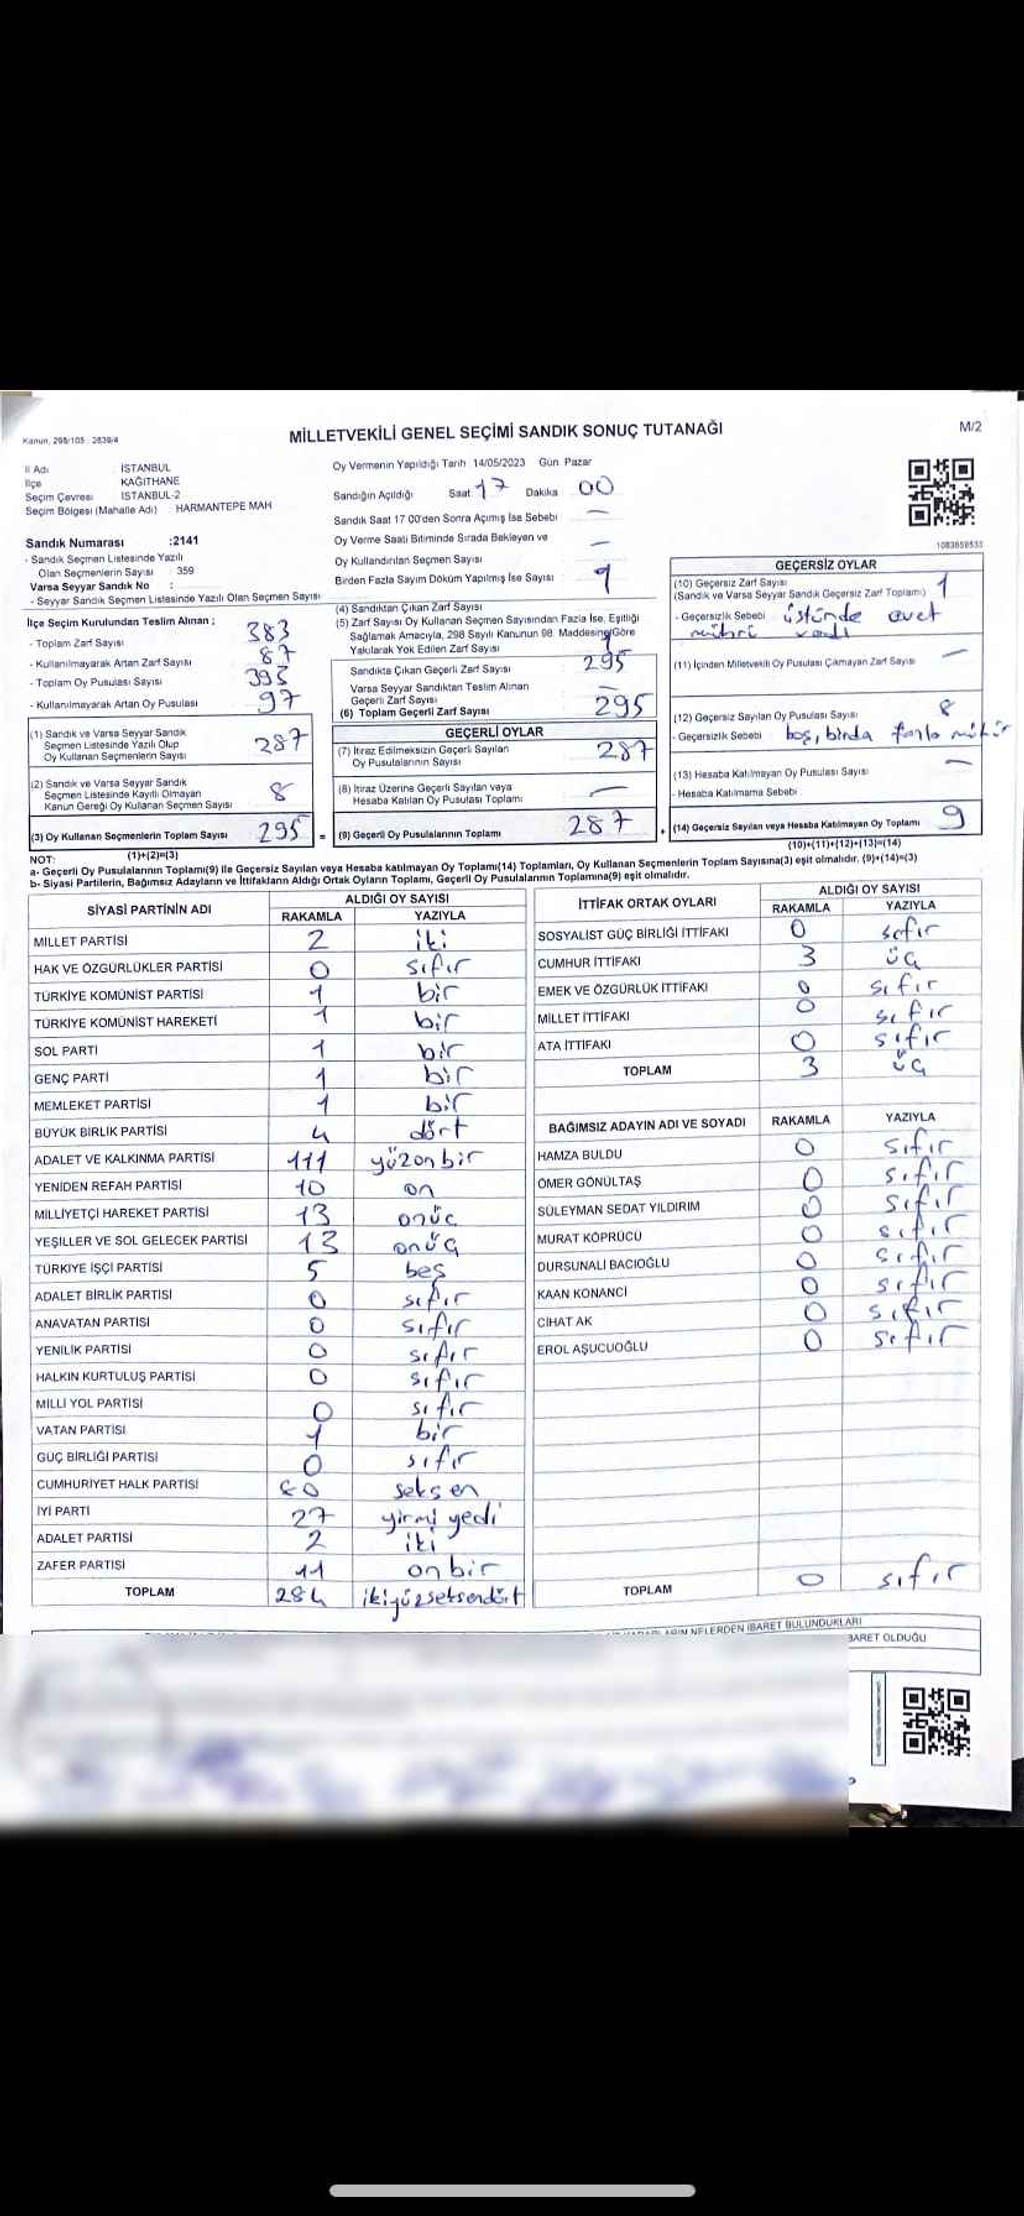 Kanun, 298/105 : 2839/4
MİLLETVEKİLİ GENEL SEÇİMİ SANDIK SONUÇ TUTANAĞI
M/2
İl Adı : İSTANBUL
İlçe KAĞITHANE
Seçim Çevresi İSTANBUL-2
Seçim Bölgesi (Mahalle Adı) : HARMANTEPE MAH
Sandık Numarası :2141
- Sandık Seçmen Listesinde Yazılı
Olan Seçmenlerin Sayısı : 359
Varsa Seyyar Sandık No :
- Seyyar Sandık Seçmen Listesinde Yazılı Olan Seçmen Sayısı
Oy Vermenin Yapıldığı Tarih 14/05/2023 Gün Pazar
Sandığın Açıldığı Saat 17 Dakika 00
Sandık Saat 17 00'den Sonra Açımış İse Sebebi —
Oy Verme Saati Bitiminde Sırada Bekleyen ve
Oy Kullandırılan Seçmen Sayısı —
Birden Fazla Sayım Döküm Yapılmış İse Sayısı
İlçe Seçim Kurulundan Teslim Alınan :
- Toplam Zarf Sayısı 383
- Kullanılmayarak Artan Zarf Sayısı 87
- Toplam Oy Pusulası Sayısı 393
- Kullanılmayarak Artan Oy Pusulası 97
(1) Sandık ve Varsa Seyyar Sandık
Seçmen Listesinde Yazılı Olup
Oy Kullanan Seçmenlerin Sayısı 287
(2) Sandık ve Varsa Seyyar Sandık
Seçmen Listesinde Kayıtlı Olmayan
Kanun Gereği Oy Kullanan Seçmen Sayısı 8
(3) Oy Kullanan Seçmenlerin Toplam Sayısı 295 =
(1)+(2)=(3)
(4) Sandıktan Çıkan Zarf Sayısı
(5) Zarf Sayısı Oy Kullanan Seçmen Sayısından Fazla İse, Eşitliği
Sağlamak Amacıyla, 298 Sayılı Kanunun 98. Maddesine Göre
Yakılarak Yok Edilen Zarf Sayısı
Sandıkta Çıkan Geçerli Zarf Sayısı 295
Varsa Seyyar Sandıktan Teslim Alınan
Geçerli Zarf Sayısı —
(6) Toplam Geçerli Zarf Sayısı 295
GEÇERLİ OYLAR
(7) İtiraz Edilmeksizin Geçerli Sayılan
Oy Pusulalarının Sayısı 287
(8) İtiraz Üzerine Geçerli Sayılan veya
Hesaba Katılan Oy Pusulası Toplamı —
(9) Geçerli Oy Pusulalarının Toplamı 287 +
1083658533
GEÇERSİZ OYLAR
(10) Geçersiz Zarf Sayısı 1
(Sandık ve Varsa Seyyar Sandık Geçersiz Zarf Toplamı)
- Geçersizlik Sebebi üstünde evet
mührü vardı
(11) İçinden Milletvekili Oy Pusulası Çıkmayan Zarf Sayısı —
(12) Geçersiz Sayılan Oy Pusulası Sayısı 8
- Geçersizlik Sebebi boş, birda fazla mühür
(13) Hesaba Katılmayan Oy Pusulası Sayısı —
- Hesaba Katılmama Sebebi
(14) Geçersiz Sayılan veya Hesaba Katılmayan Oy Toplamı 9
(10)+(11)+(12)+(13)=(14)
NOT:
a- Geçerli Oy Pusulalarının Toplamı(9) ile Geçersiz Sayılan veya Hesaba katılmayan Oy Toplamı(14) Toplamları, Oy Kullanan Seçmenlerin Toplam Sayısına(3) eşit olmalıdır. (9)+(14)=(3)
b- Siyasi Partilerin, Bağımsız Adayların ve İttifakların Aldığı Ortak Oyların Toplamı, Geçerli Oy Pusulalarının Toplamına(9) eşit olmalıdır.
SİYASİ PARTİNİN ADI ALDIĞI OY SAYISI
RAKAMLA YAZIYLA
MİLLET PARTİSİ 2 iki
HAK VE ÖZGÜRLÜKLER PARTİSİ 0 sıfır
TÜRKİYE KOMÜNİST PARTİSİ 1 bir
TÜRKİYE KOMÜNİST HAREKETİ 1 bir
SOL PARTİ 1 bir
GENÇ PARTİ 1 bir
MEMLEKET PARTİSİ 1 bir
BÜYÜK BİRLİK PARTİSİ 4 dört
ADALET VE KALKINMA PARTİSİ 111 yüzonbir
YENİDEN REFAH PARTİSİ 10 on
MİLLİYETÇİ HAREKET PARTİSİ 13 onüç
YEŞİLLER VE SOL GELECEK PARTİSİ 13 onüç
TÜRKİYE İŞÇİ PARTİSİ 5 beş
ADALET BİRLİK PARTİSİ 0 sıfır
ANAVATAN PARTİSİ 0 sıfır
YENİLİK PARTİSİ 0 sıfır
HALKIN KURTULUŞ PARTİSİ 0 sıfır
MİLLİ YOL PARTİSİ 0 sıfır
VATAN PARTİSİ 1 bir
GÜÇ BİRLİĞİ PARTİSİ 0 sıfır
CUMHURİYET HALK PARTİSİ 80 seksen
İYİ PARTİ 27 yirmi yedi
ADALET PARTİSİ 2 iki
ZAFER PARTİSİ 11 onbir
TOPLAM 284 ikiyüzseksendört
İTTİFAK ORTAK OYLARI ALDIĞI OY SAYISI
RAKAMLA YAZIYLA
SOSYALİST GÜÇ BİRLİĞİ İTTİFAKI 0 sıfır
CUMHUR İTTİFAKI 3 üç
EMEK VE ÖZGÜRLÜK İTTİFAKI 0 sıfır
MİLLET İTTİFAKI 0 sıfır
ATA İTTİFAKI 0 sıfır
TOPLAM 3 üç
BAĞIMSIZ ADAYIN ADI VE SOYADI RAKAMLA YAZIYLA
HAMZA BULDU 0 sıfır
ÖMER GÖNÜLTAŞ 0 sıfır
SÜLEYMAN SEDAT YILDIRIM 0 sıfır
MURAT KÖPRÜCÜ 0 sıfır
DURSUNALİ BACIOĞLU 0 sıfır
KAAN KONANCİ 0 sıfır
CİHAT AK 0 sıfır
EROL AŞUCUOĞLU 0 sıfır
TOPLAM 0 sıfır
NELERDEN İBARET BULUNDUKLARI
BARET OLDUĞU